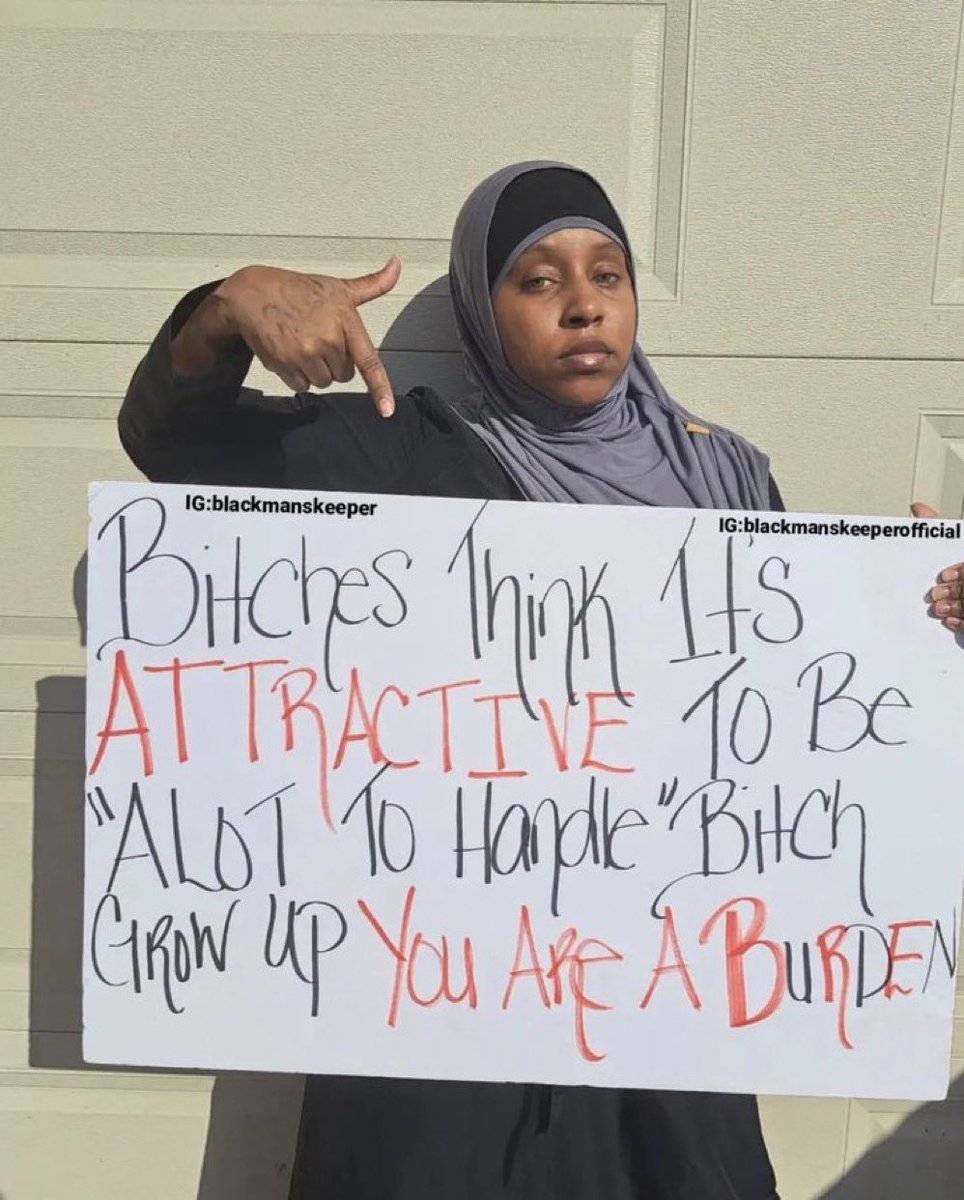 IG:blackmanskeeper
IG:blackmanskeeperofficial
Bitches Think It's
ATTRACTIVE To Be
"ALOT To Handle" Bitch
GROW UP You Are A BURDEN